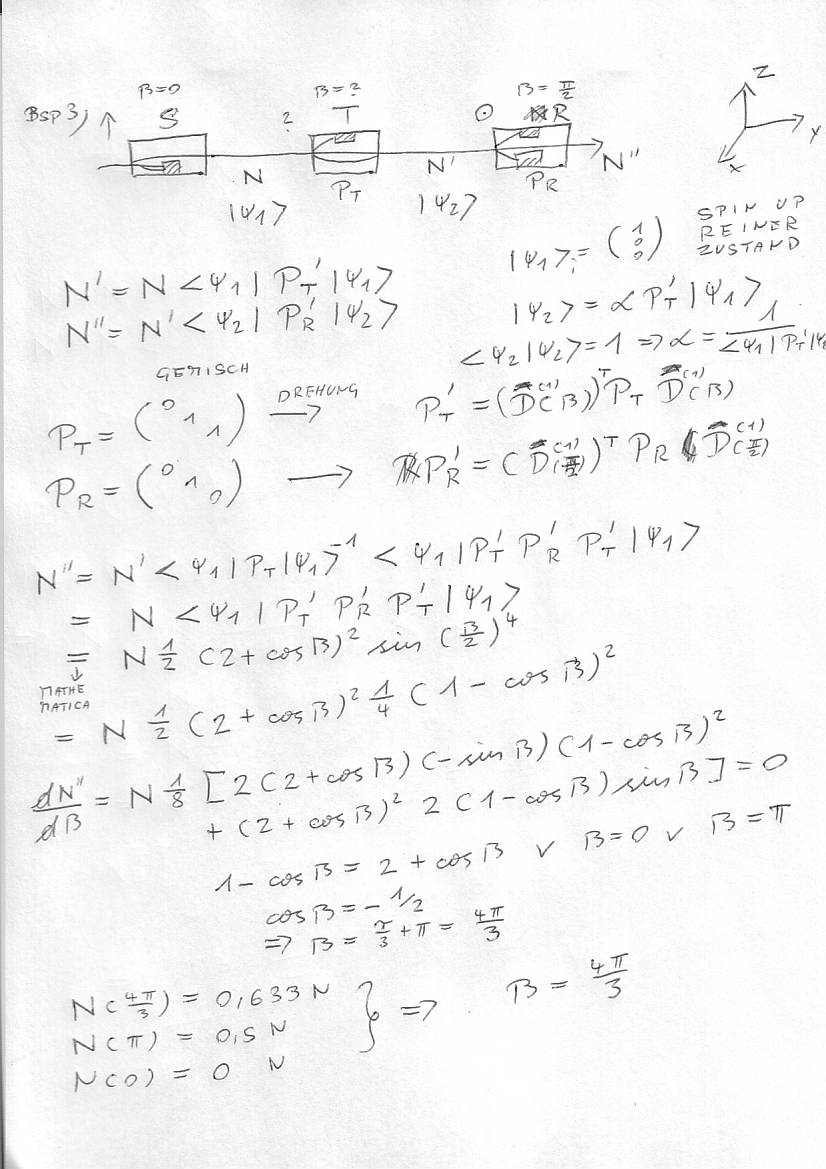 BSP 3) ↑ B=0 S N |Ψ1> ? B=? T P_T N' |Ψ2> ⊙ B=π/2 R P_R N'' Z Y X
|Ψ1> = (1 0 0) SPIN UP
REINER
ZUSTAND
N' = N <Ψ1| P_T' |Ψ1>
N'' = N' <Ψ2| P_R' |Ψ2>
|Ψ2> = α P_T' |Ψ1>
<Ψ2|Ψ2> = 1 => α = 1/<Ψ1|P_T'|Ψ
GEMISCH
P_T = (0 1 1) DREHUNG → P_T' = (D^(1)(B))^T P_T D^(1)(B)
P_R = (0 1 0) → P_R' = (D^(1)(π/2))^T P_R D^(1)(π/2)
N'' = N' <Ψ1|P_T|Ψ1>^-1 <Ψ1|P_T' P_R' P_T'|Ψ1>
= N <Ψ1|P_T' P_R' P_T'|Ψ1>
= N 1/2 (2 + cos B)^2 sin (B/2)^4
↓
MATHE
MATICA
= N 1/2 (2 + cos B)^2 1/4 (1 - cos B)^2
dN''/dB = N 1/8 [2(2 + cos B)(-sin B)(1 - cos B)^2
+ (2 + cos B)^2 2(1 - cos B) sin B] = 0
1 - cos B = 2 + cos B ∨ B=0 ∨ B=π
cos B = -1/2
=> B = π/3 + π = 4π/3
N(4π/3) = 0,633 N
N(π) = 0,5 N } => B = 4π/3
N(0) = 0 N